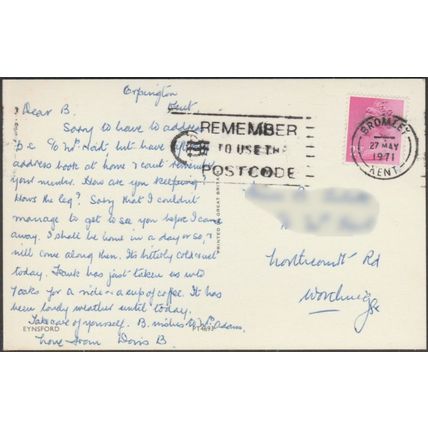 Orpington
Kent.
Dear B.
Sorry to have to address
p.c. c/o Mrs Hart, but have left
address book at home & cant remember
your number. How are you keeping?
Hows the leg? Sorry that I couldn't
manage to get to see you before I came
away. I shall be home in a day or so, &
will come along then. Its bitterly cold & wet
today. Frank has just taken us into
7oaks for a ride & a cup of coffee. It has
been lovely weather until today.
Take care of yourself. B. wishes to Mrs Adams.
Love from Doris B
EYNSFORD
PRINTED IN GREAT BRITAIN
REMEMBER
TO USE THE
POSTCODE
BROMLEY
27 MAY
1971
KENT
Northcourt Rd
Worthing